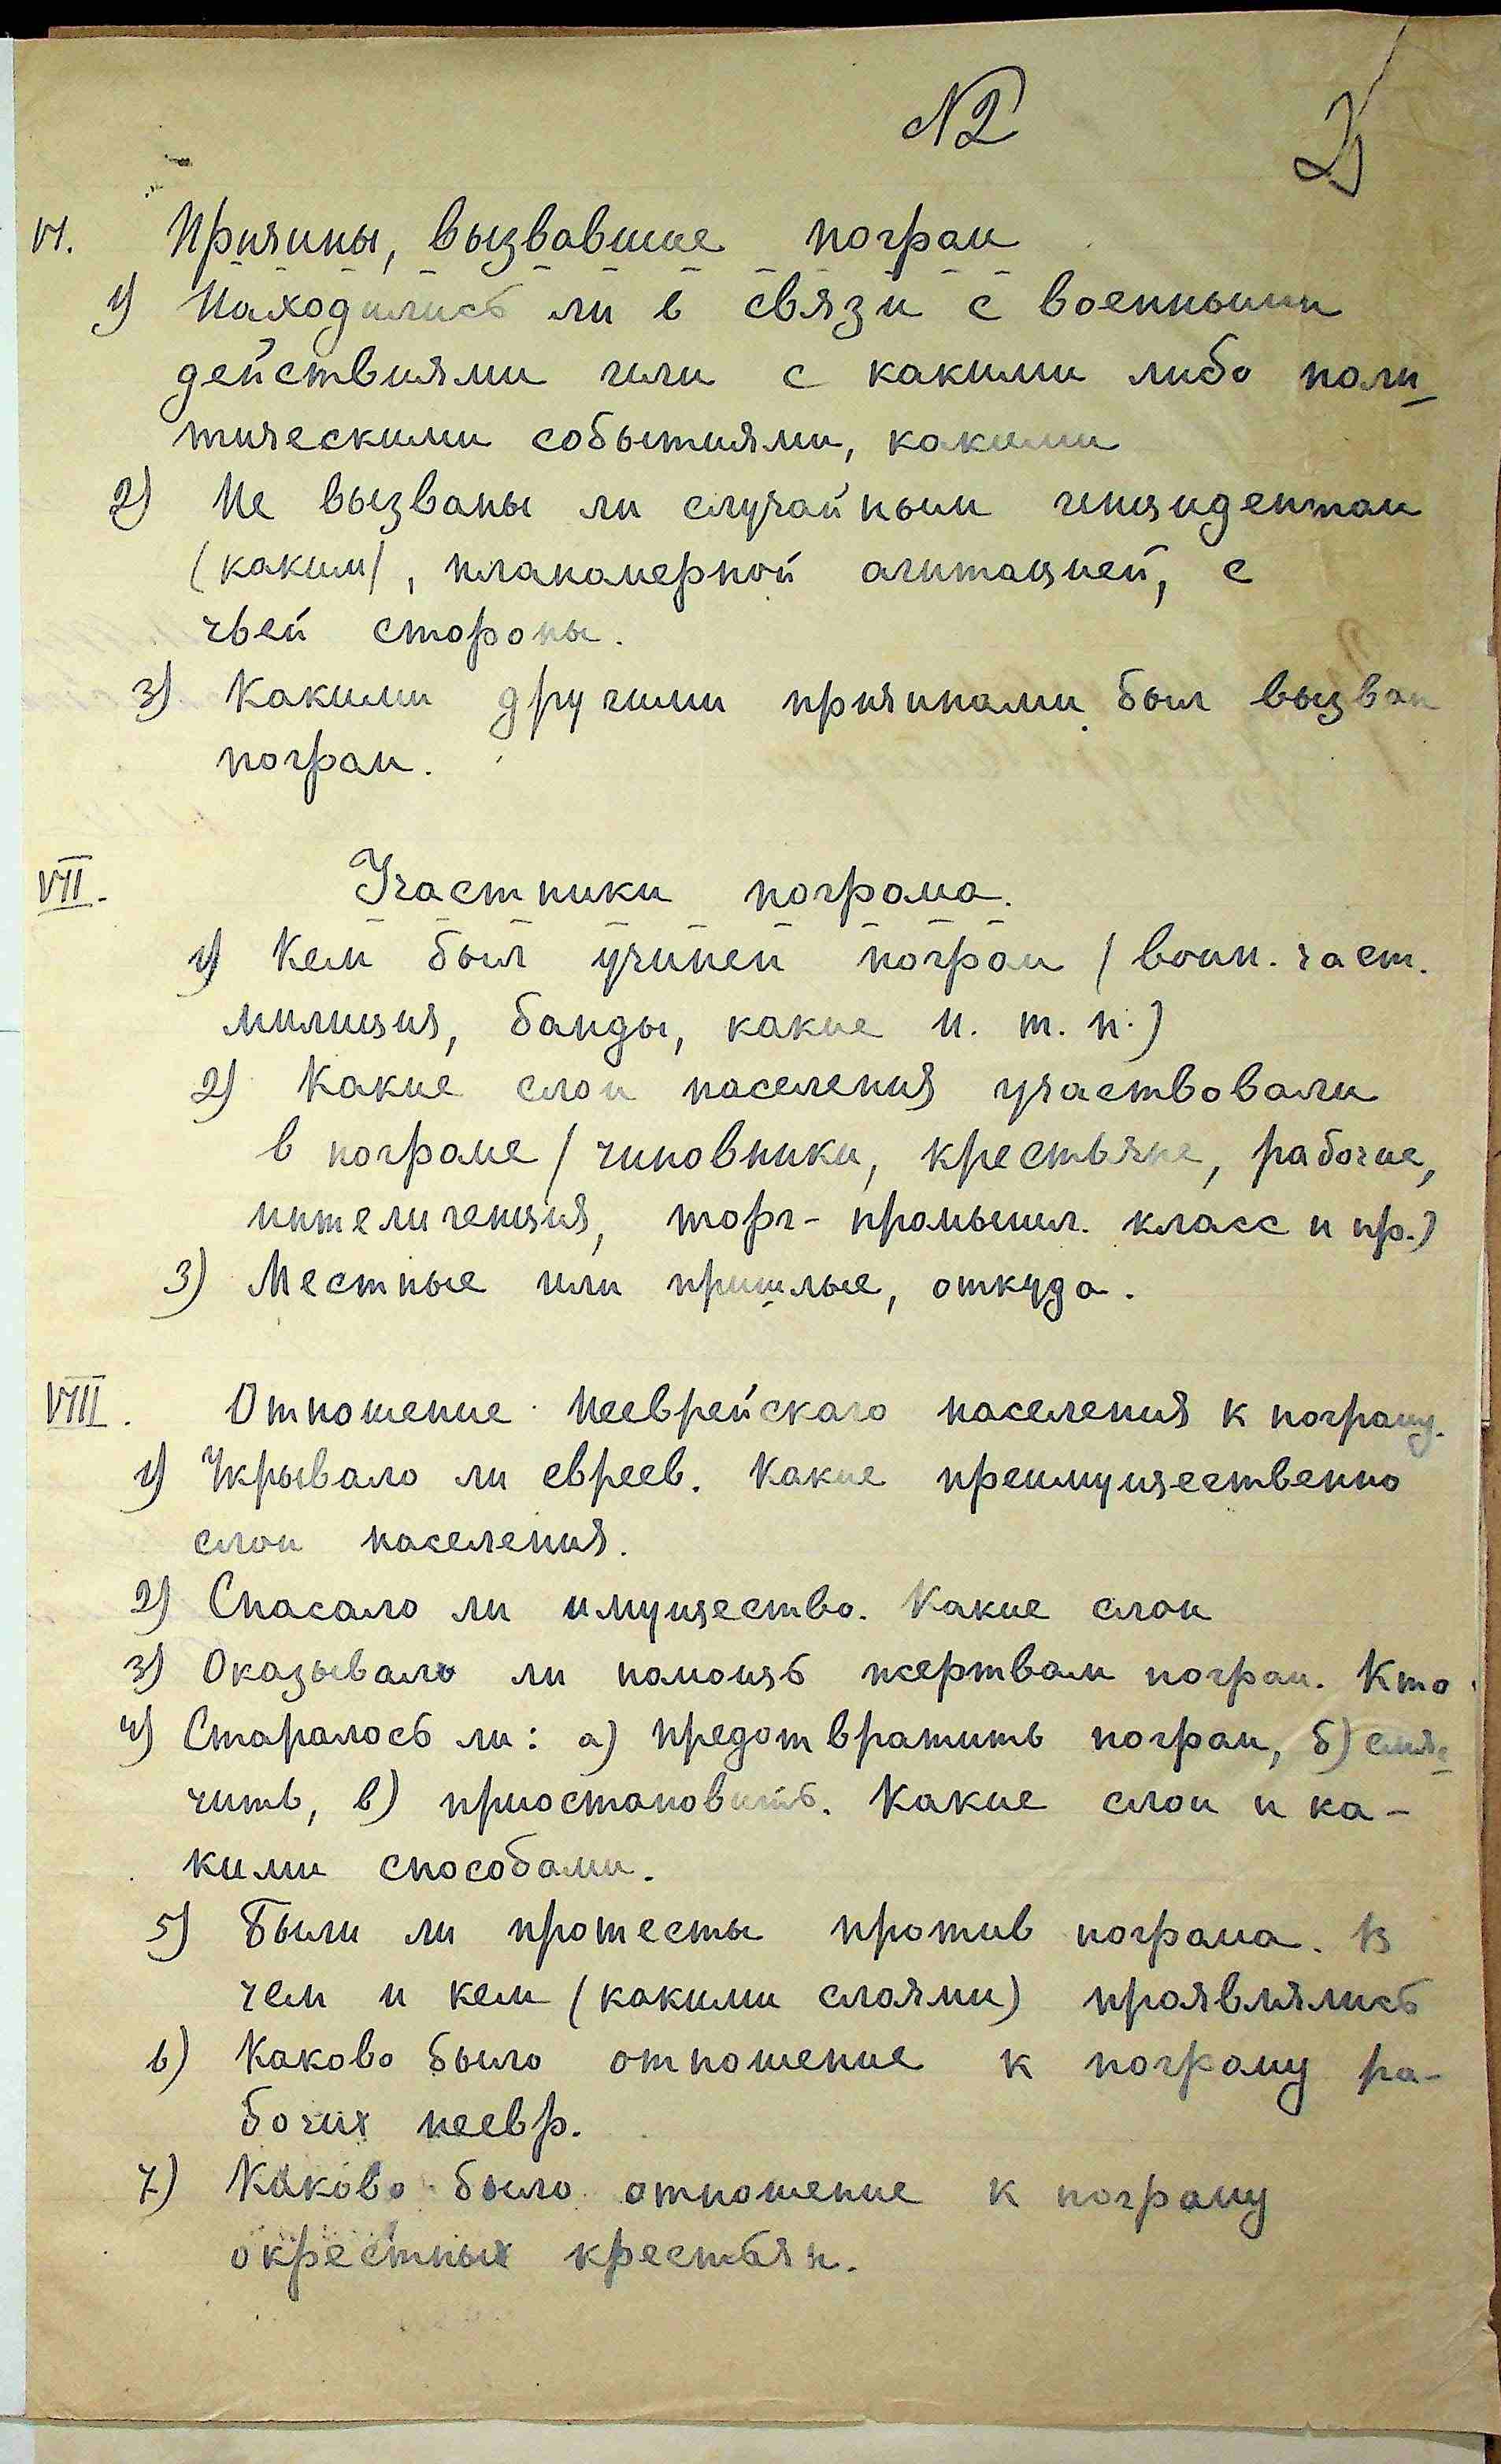 N2
3
VI. Причины, вызвавшие погром
1) Находились ли в связи с военными
действиями или с какими либо поли-
тическими событиями, какими
2) Не вызваны ли случайным инцидентом
(каким), планомерной агитацией, с
чьей стороны.
3) Какими другими причинами был вызван
погром.
VII. Участники погрома.
1) Кем был учинен погром (воин. част.
милиция, банды, какие и. т. п.)
2) Какие слои населения участвовали
в погроме (чиновники, крестьяне, рабочие,
интелигенция, торг- промышл. класс и пр.)
3) Местные или пришлые, откуда.
VIII. Отношение нееврейскаго населения к погрому.
1) Укрывало ли евреев. Какие преимущественно
слои населения.
2) Спасало ли имущество. Какие слои
3) Оказывало ли помощь жертвам погром. Кто.
4) Старалось ли: а) предотвратить погром, б) смяг-
чить, в) приостановить. Какие слои и ка-
кими способами.
5) Были ли протесты против погрома. В
чем и кем (какими слоями) проявлялись
6) Каково было отношение к погрому ра-
бочих неевр.
7) Каково было отношение к погрому
окрестных крестьян.